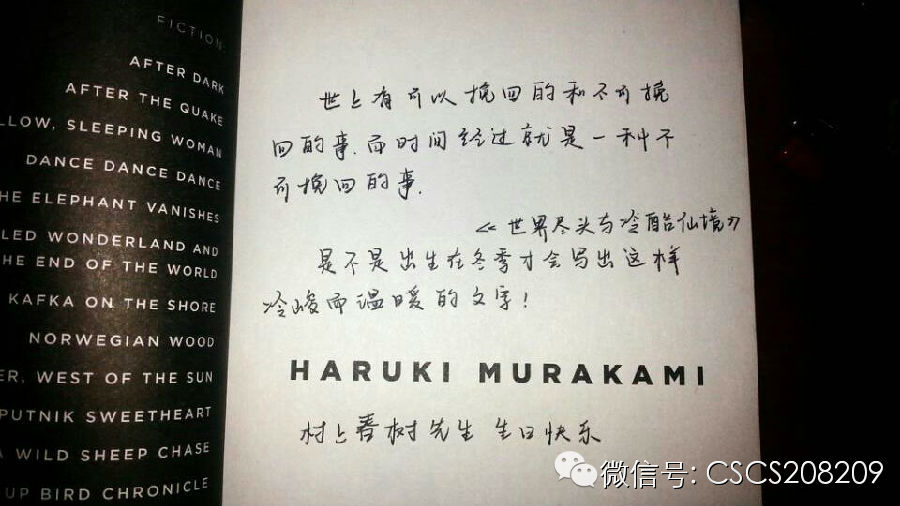 FICTION:
AFTER DARK
AFTER THE QUAKE
LLOW, SLEEPING WOMAN
DANCE DANCE DANCE
HE ELEPHANT VANISHES
LED WONDERLAND AND
HE END OF THE WORLD
KAFKA ON THE SHORE
NORWEGIAN WOOD
ER, WEST OF THE SUN
PUTNIK SWEETHEART
A WILD SHEEP CHASE
UP BIRD CHRONICLE
世上有可以挽回的和不可挽
回的事,而时间经过就是一种不
可挽回的事.
《世界尽头与冷酷仙境》
是不是出生在冬季才会写出这样
冷峻而温暖的文字!
HARUKI MURAKAMI
村上春树先生 生日快乐
微信号: CSCS208209